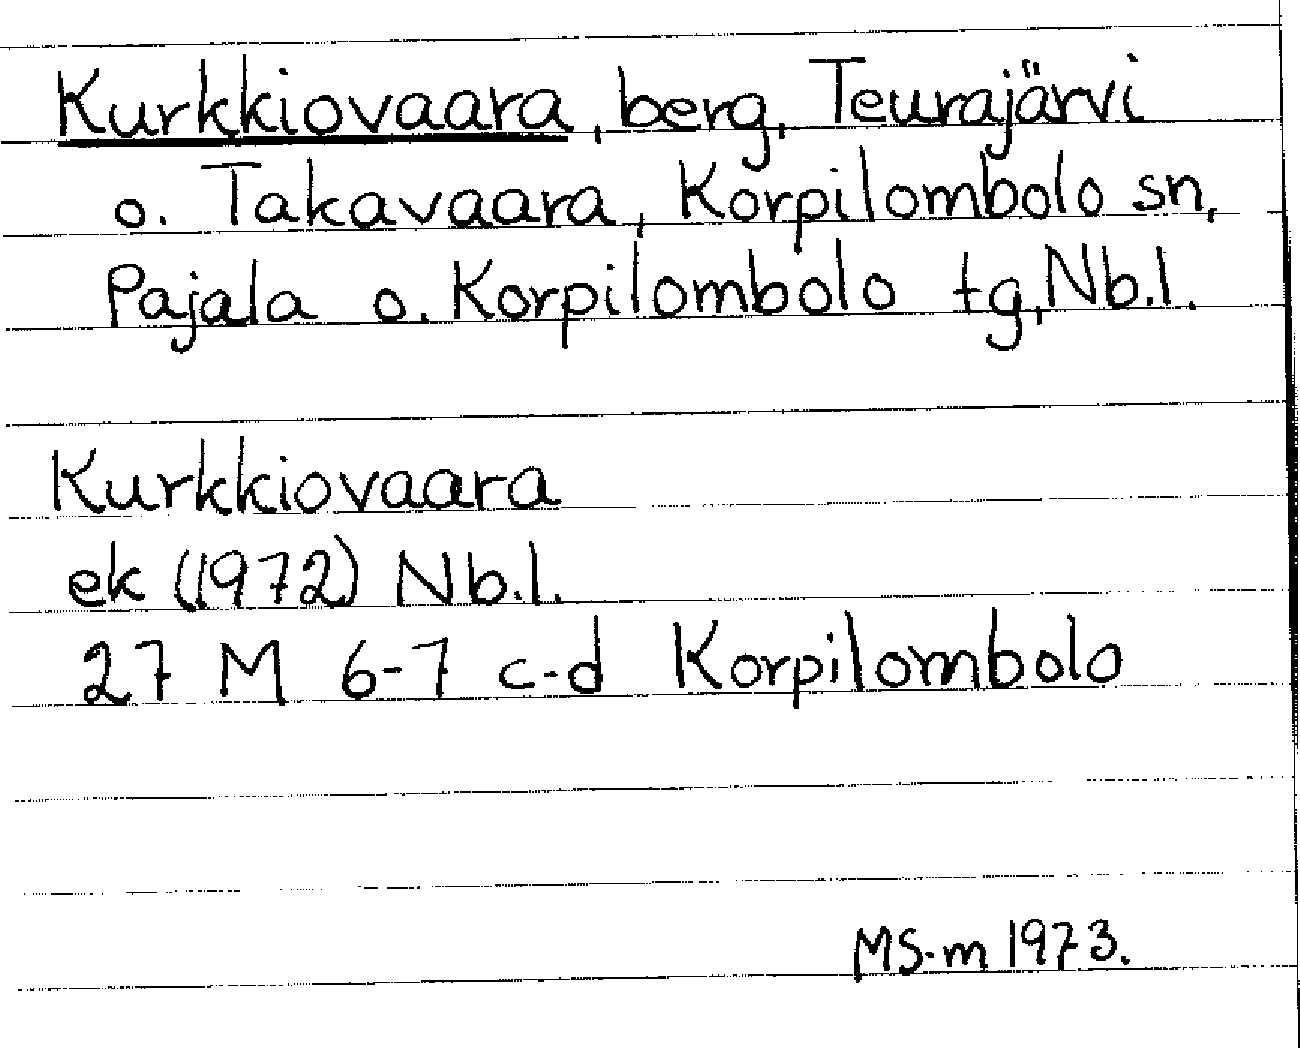 Kurkkiovaara, berg, Teurajärvi
o. Takavaara, Korpilombolo sn,
Pajala o. Korpilombolo tg, Nb.l.
Kurkkiovaara
ek (1972) Nb.l.
27 M 6-7 c-d Korpilombolo
MS-m 1973.